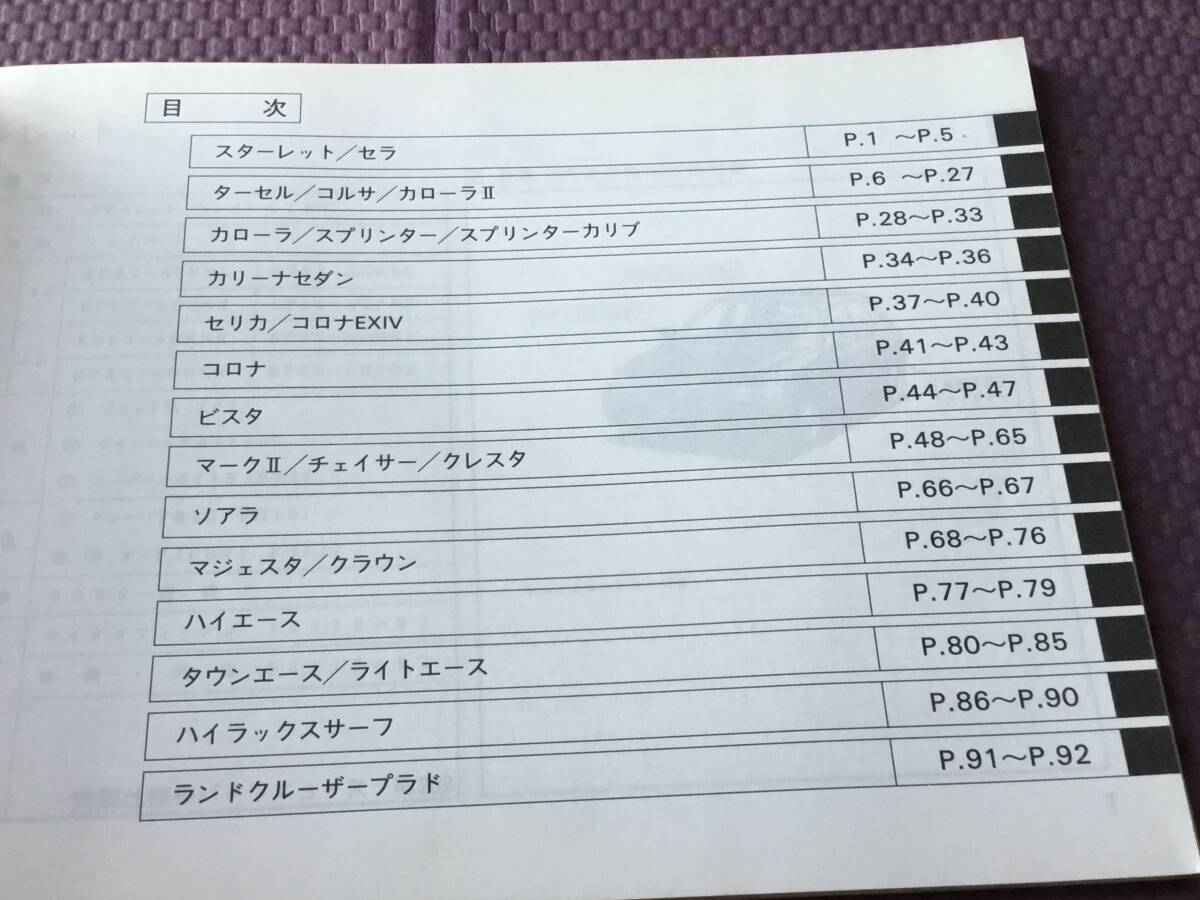 目 次
スターレット／セラ P.1 ～P.5
ターセル／コルサ／カローラⅡ P.6 ～P.27
カローラ／スプリンター／スプリンターカリブ P.28～P.33
カリーナセダン P.34～P.36
セリカ／コロナEXIV P.37～P.40
コロナ P.41～P.43
ビスタ P.44～P.47
マークⅡ／チェイサー／クレスタ P.48～P.65
ソアラ P.66～P.67
マジェスタ／クラウン P.68～P.76
ハイエース P.77～P.79
タウンエース／ライトエース P.80～P.85
ハイラックスサーフ P.86～P.90
ランドクルーザープラド P.91～P.92